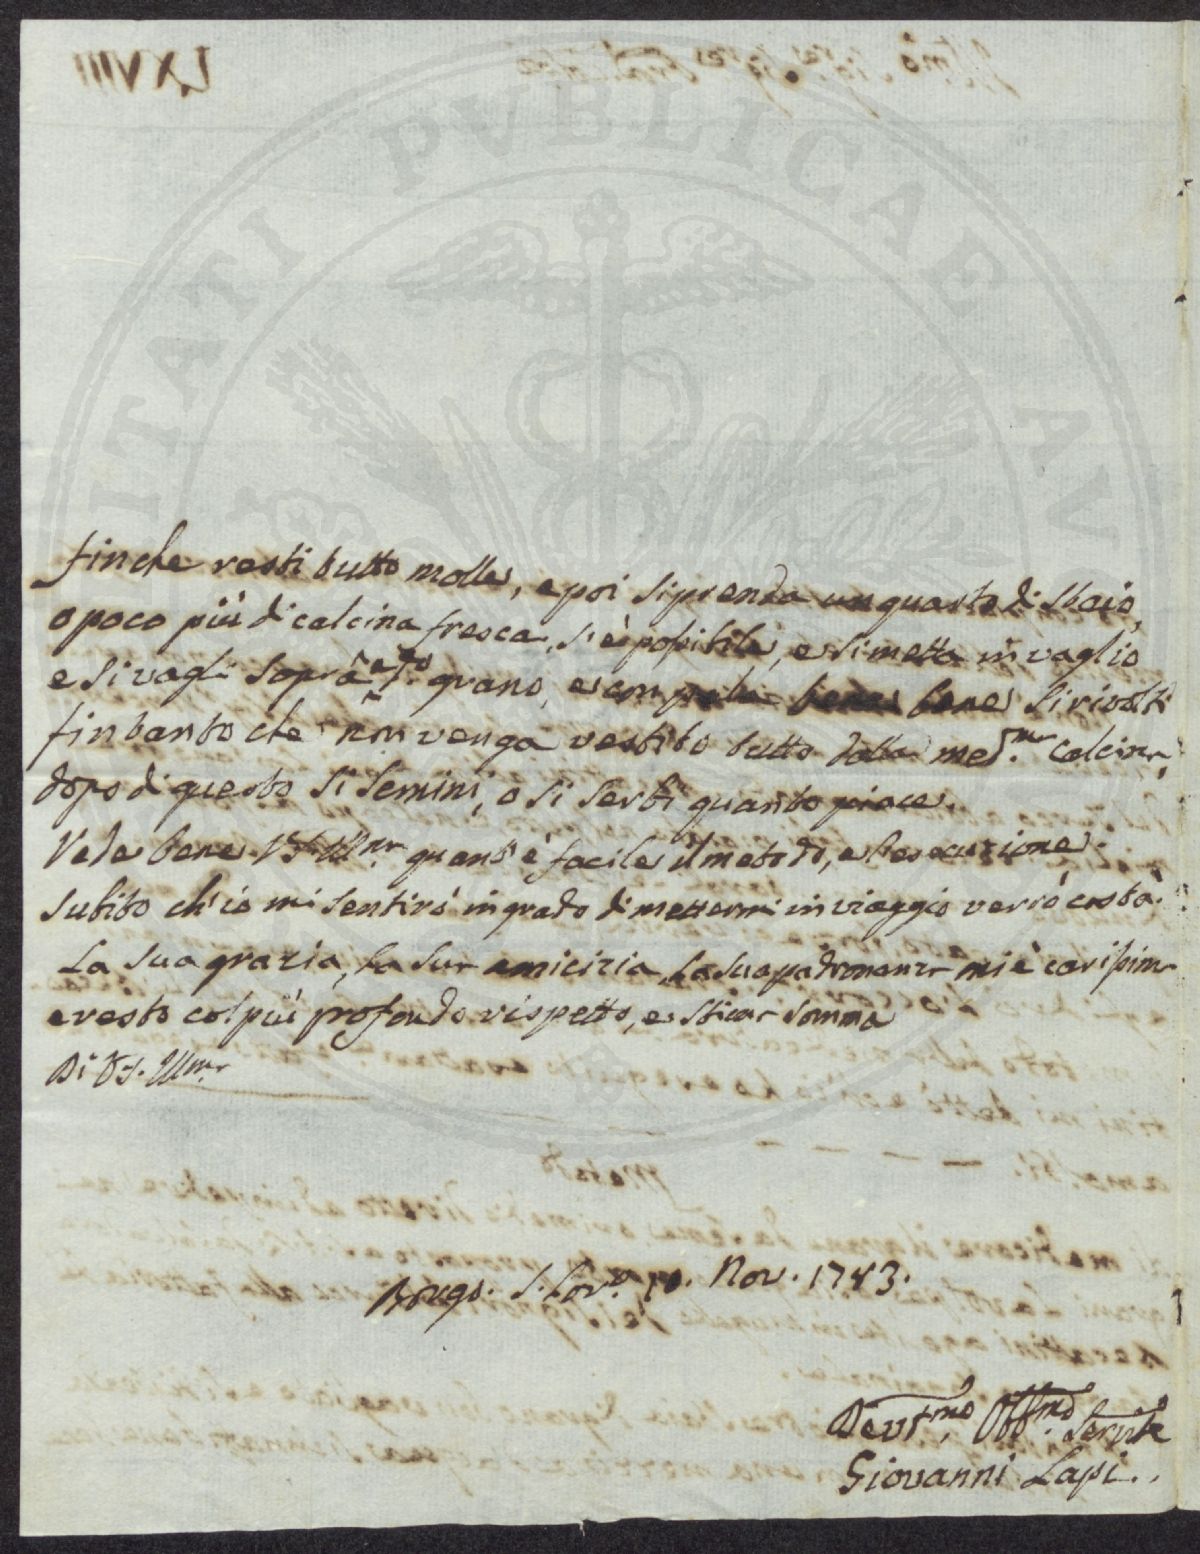 finche resti tutto molle, e poi si prenda un quarto di Staio,
o poco più di calcina fresca, s'è possibile, e si metta in vaglio
e si vagli sopra grano, e con pala bene si rivolti
fintanto che non venga vestito tutto dalla med.ma calcina,
dopo di questo si semini, o si serbi quanto piace.
Vede bene VS. Ill.ma quant'è facile il metodo, e l'esecuzione.
Subito ch'io mi sentirò in grado di mettermi in viaggio verrò costà.
La sua grazia, la sua amicizia, la sua padronanza mi è carissima
e resto col più profondo rispetto, e stima somma
Di VS. Ill.ma
Borgo. S. Lor.o 10. Nov. 1783.
Devt.mo Obb.mo Servit.e
Giovanni Lapi.